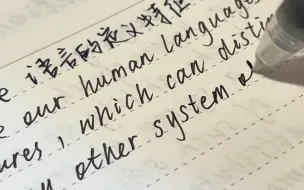 e 语言的定义特征
e our human language
ures, which can disti
y other system o